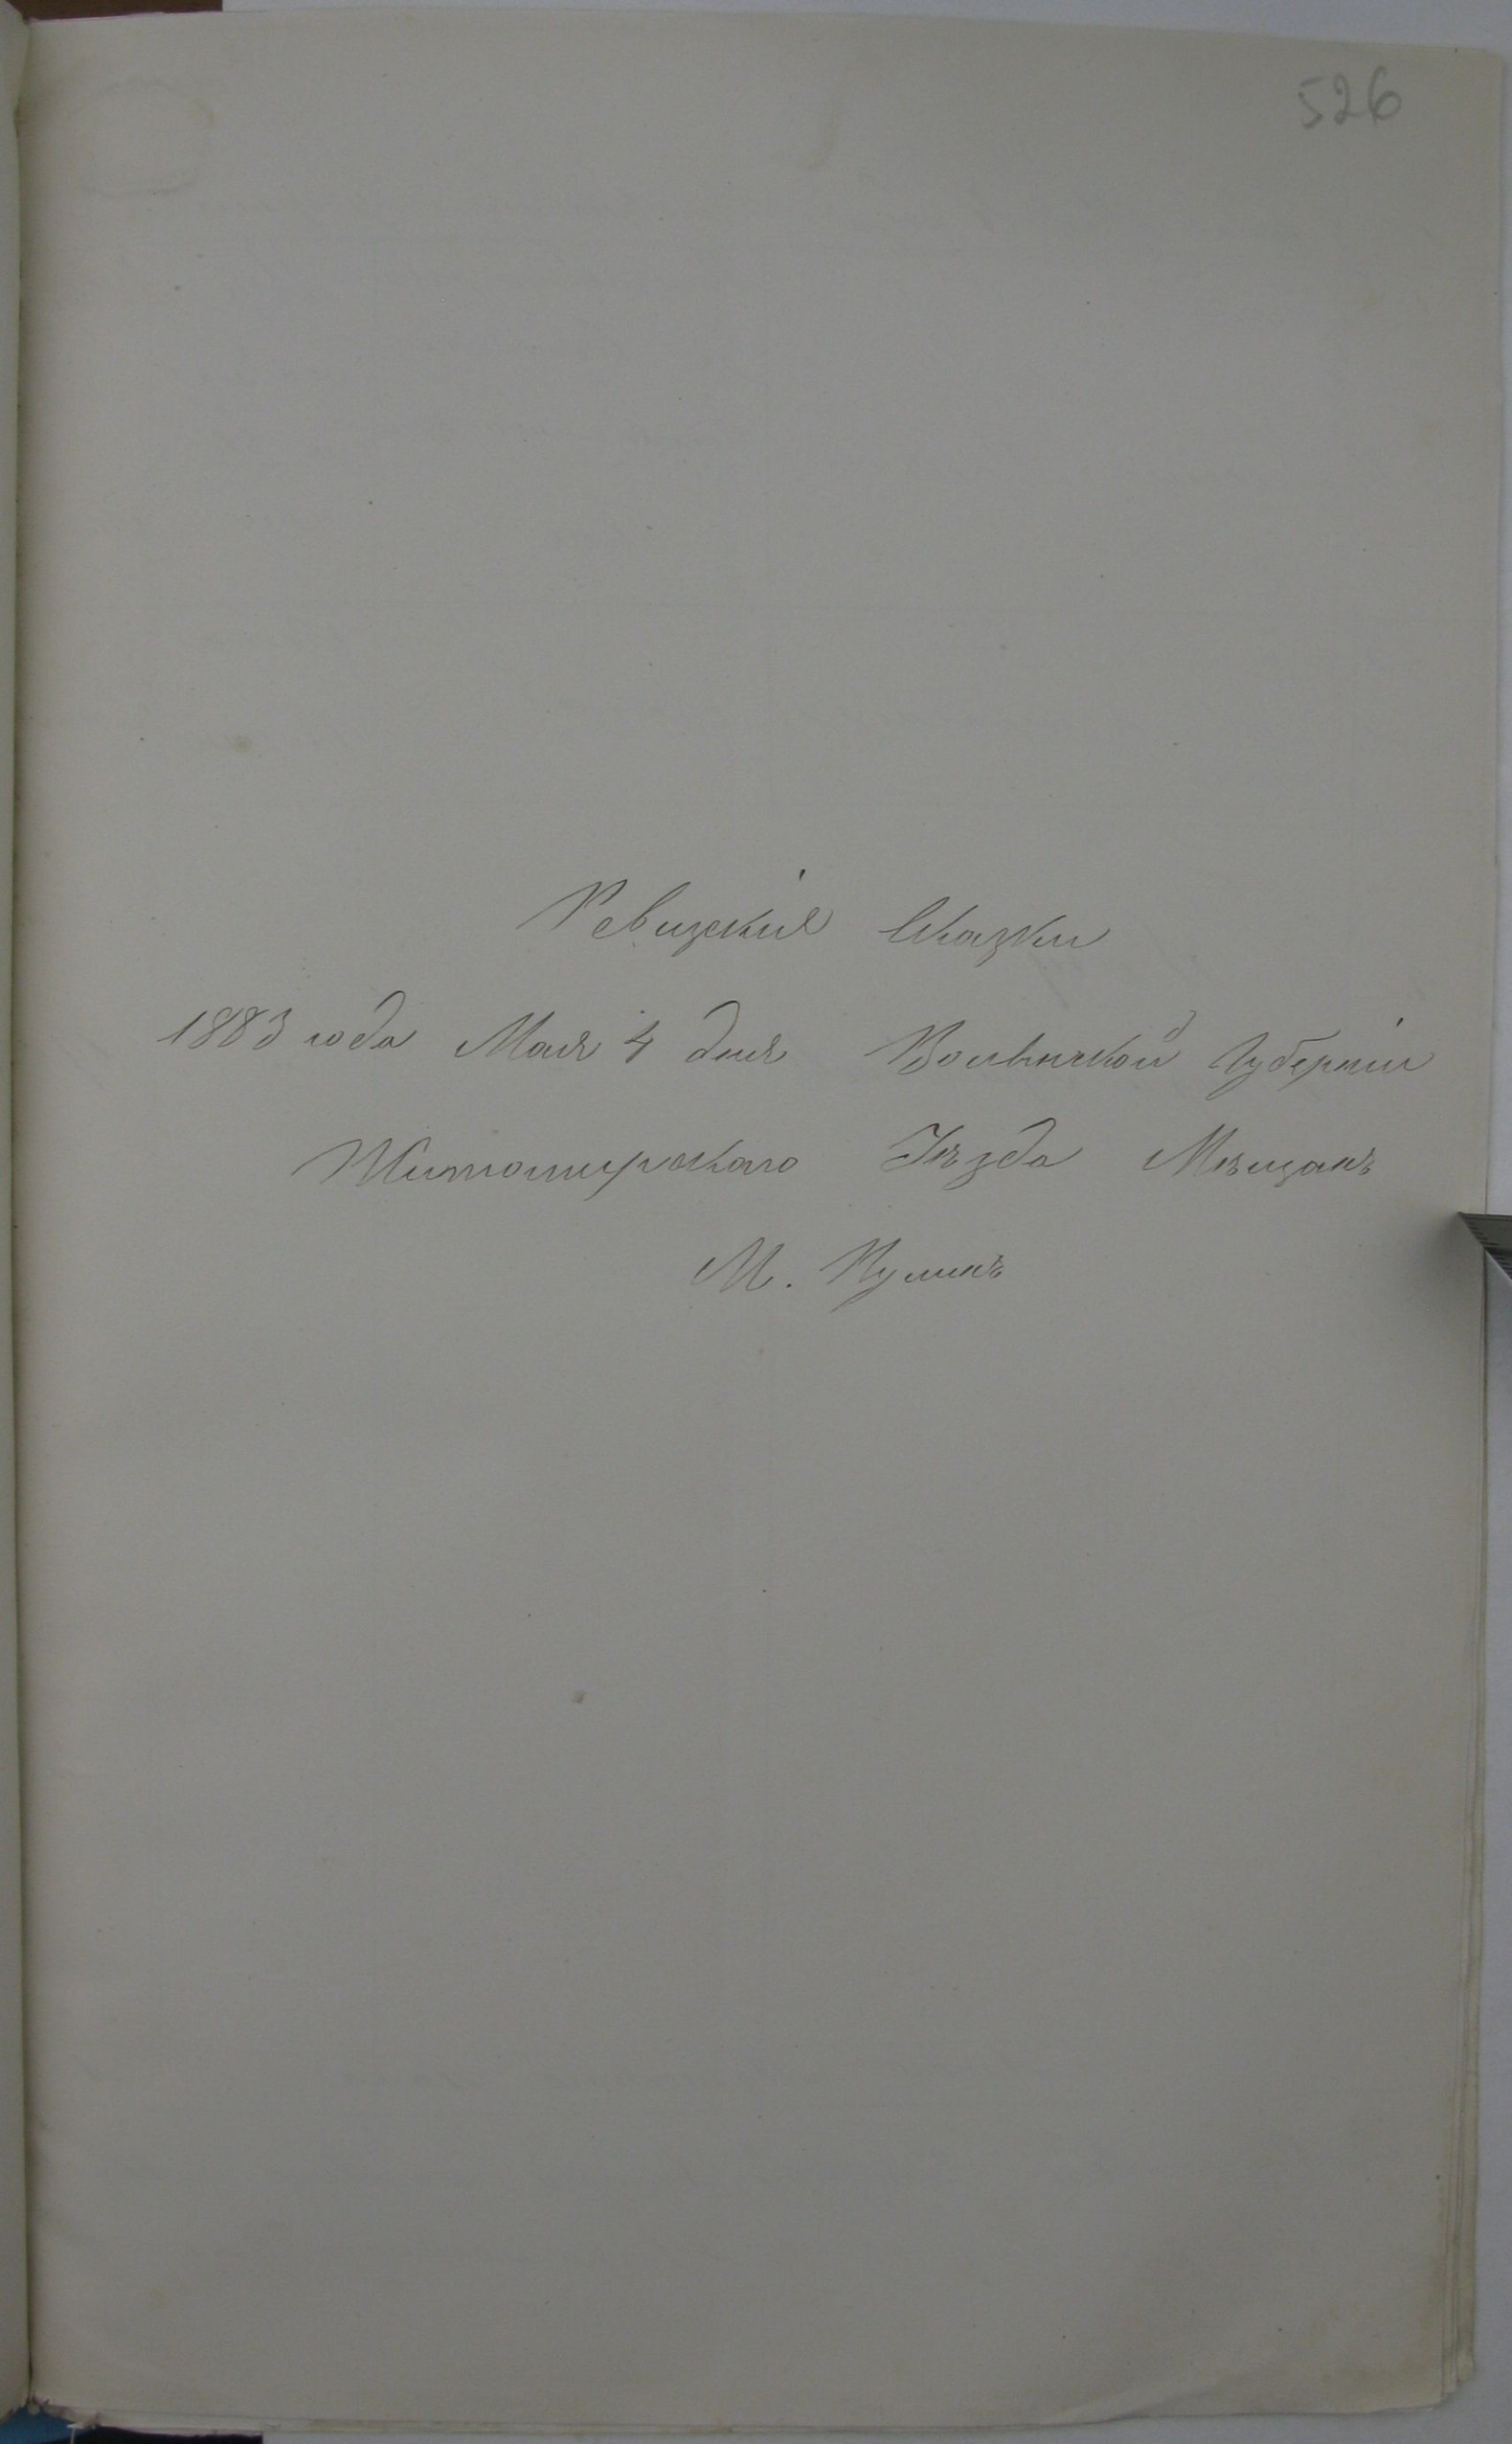 526
Ревизскія Сказки
1883 года Мая 4 дня Волынской Губерніи
Житомирскаго Уѣзда Мѣщанъ
М. Пулинъ